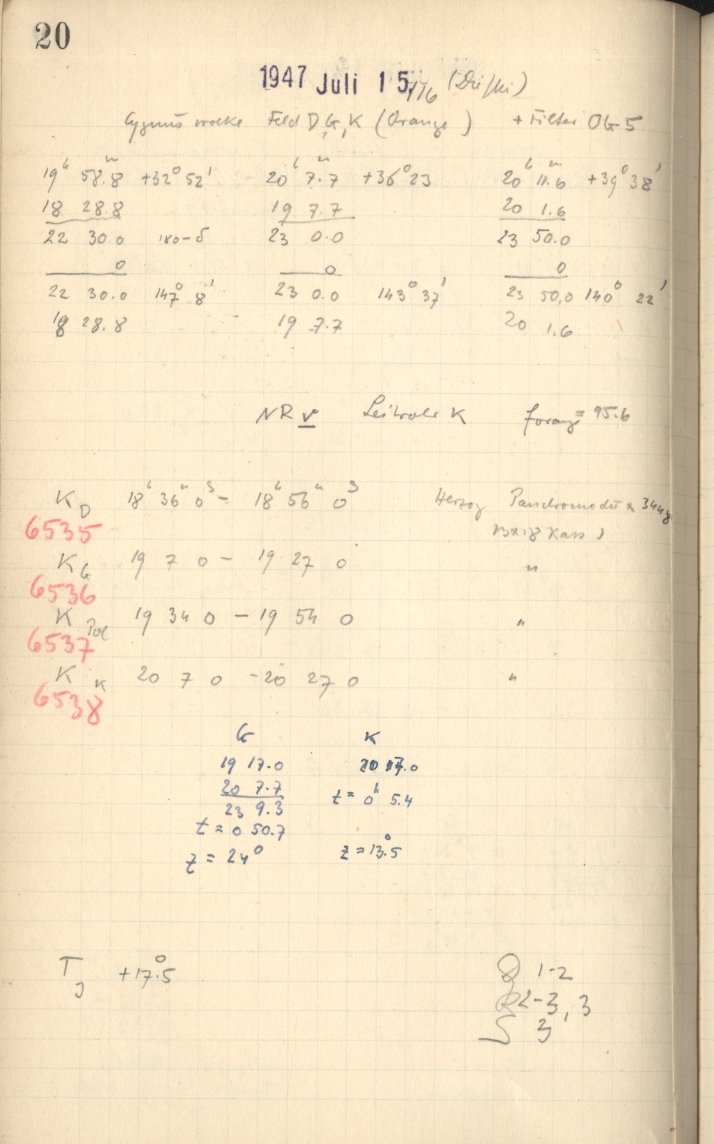 20
1947 Juli 15./16
Cygnuswolke Feld D, G, K (Orange) + Filter OG 5
19ʰ 58.ᵐ8 +32° 52' 20ʰ 7.ᵐ7 +36° 23 20ʰ 11.ᵐ6 +39° 38'
18 28.8 19 7.7 20 1.6
22 30.0 180-δ 23 0.0 23 50.0
0 0 0
22 30.0 147° 8' 23 0.0 143° 37' 23 50.0 140° 22'
18 28.8 19 7.7 20 1.6
NR V K = 95.6
K_D 18ʰ 36ᵐ 0ˢ - 18ʰ 56ᵐ 0ˢ Herzog
6535
K_G 19 7 0 - 19 27 0 "
6536
K_Pol 19 34 0 - 19 54 0 "
6537
K_K 20 7 0 - 20 27 0 "
6538
G K
19 17.0 20 17.0
20 7.7 t = 0ʰ 5.4
23 9.3
t = 0 50.7
z = 24° z = 13.°5
T_J +17.°5
1-2
R 2-3, 3
S 3